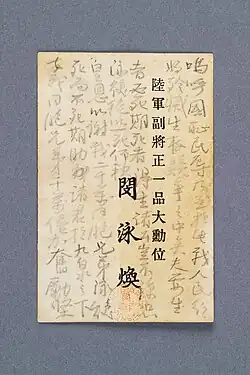 嗚呼國恥民辱乃至於此我人民行
將殄滅生存競爭之中矣夫要生
陸軍副將正一品大勳位
者必死期死者得生諸公豈不諒只
閔泳煥
泳煥徒以一死仰報
皇恩以謝我二千萬同胞兄弟泳煥
死而不死期助諸君於九泉之下
幸我同胞兄弟千萬億加奮勵堅